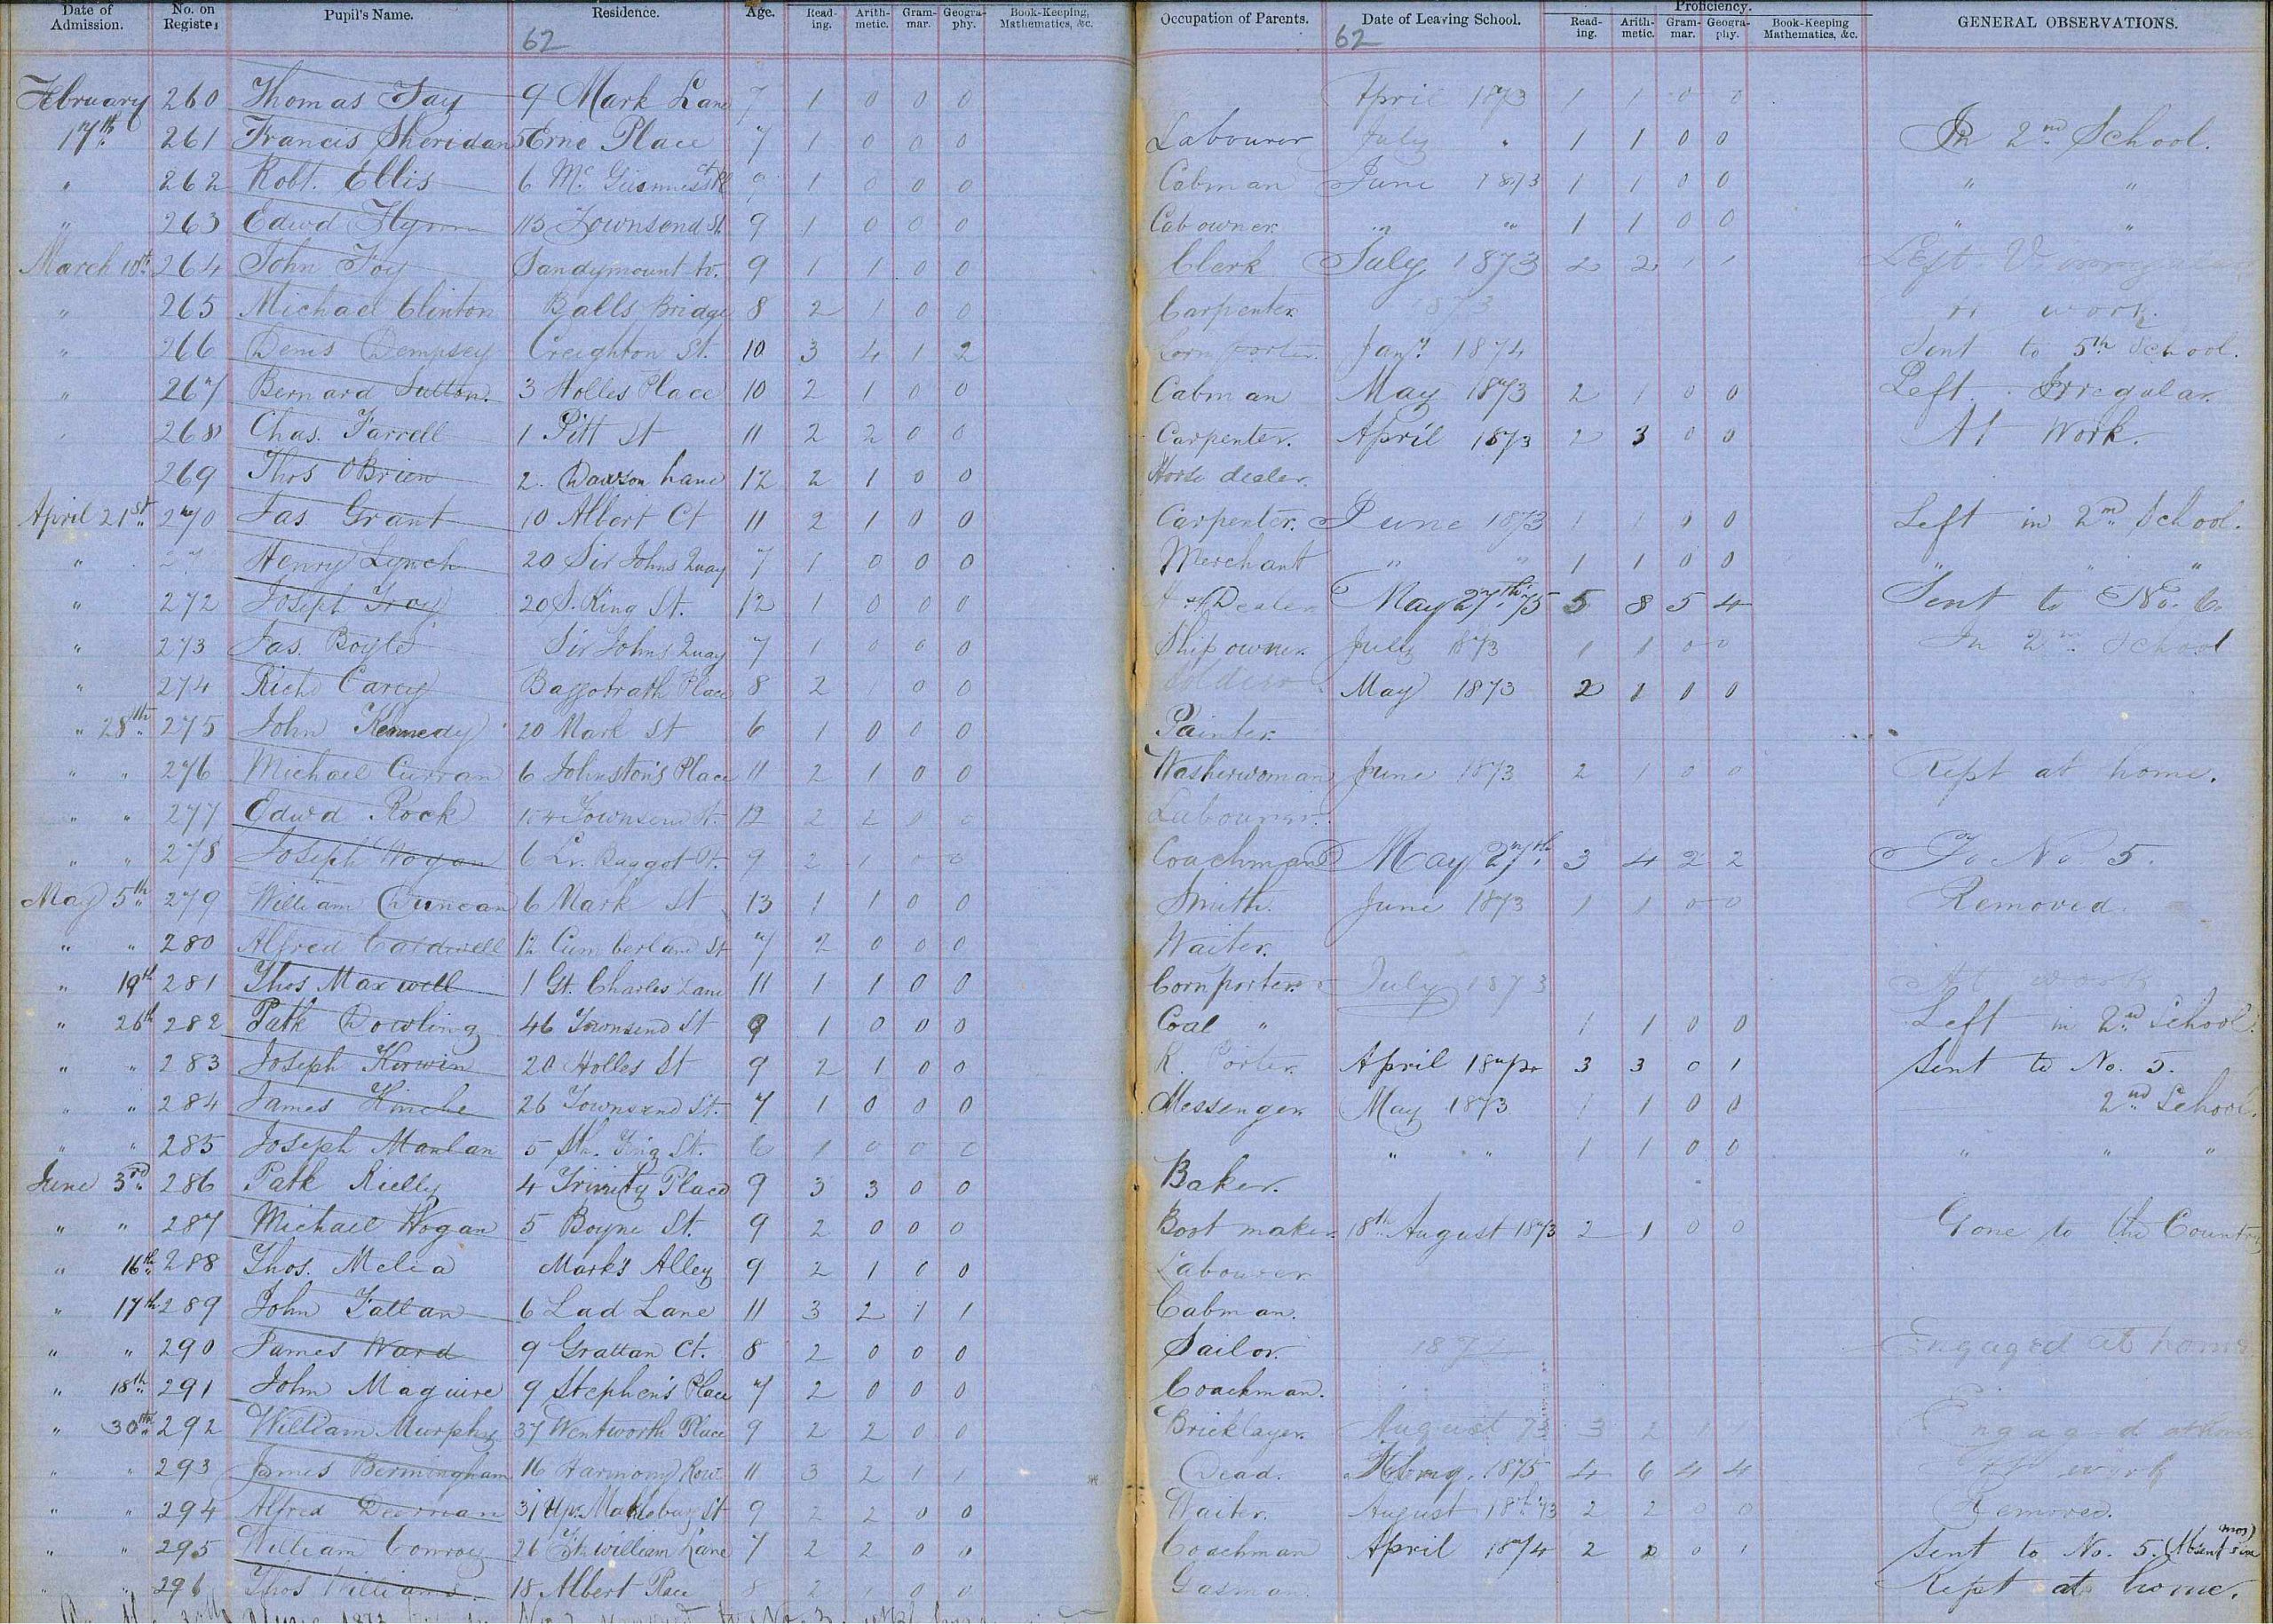 Date of Admission. No. on Register Pupil's Name. Residence. Age. Read-ing. Arith-metic. Gram-mar. Geogra-phy. Book-Keeping, Mathematics, &c. Occupation of Parents. Date of Leaving School. Proficiency. Read-ing. Arith-metic. Gram-mar. Geogra-phy. Book-Keeping Mathematics, &c. GENERAL OBSERVATIONS.
62 62
February 260 Thomas 9 Mark Lane 7 1 0 0 0 April 1873 1 1 0 0
17th 261 Francis Sheridan 5 Erne Place 7 1 0 0 0 Labourer July " 1 1 0 0 In 2nd School.
" 262 Robt. Ellis 6 Mc 9 1 0 0 0 Cabman June 1873 1 1 0 0 " "
" 263 Edwd Flynn 115 Townsend St. 9 1 0 0 0 Cab owner. " " 1 1 0 0 " "
March 10th 264 John Foy Sandymount Av. 9 1 1 0 0 Clerk July 1873 2 2 1 1 Left
" 265 Michael Clinton Balls Bridge 8 2 1 0 0 Carpenter. 1873 At work.
" 266 Denis Dempsey Creighton St. 10 3 4 1 2 Corn porter. Jany. 1874 Sent to 5th School.
" 267 Bernard Sutton. 3 Holles Place 10 2 1 0 0 Cabman May 1873 2 1 0 0 Left. Irregular.
" 268 Chas. Farrell 1 Pitt St 11 2 2 0 0 Carpenter. April 1873 2 3 0 0 At Work.
269 Thos OBrien 2. Dawson Lane 12 2 1 0 0 Horse dealer.
April 21st 270 Jas. Grant 10 Albert Ct 11 2 1 0 0 Carpenter. June 1873 1 1 0 0 Left in 2nd School.
" Henry Lynch 20 Sir Johns Quay 7 1 0 0 0 Merchant " " 1 1 0 0 " " "
" 272 Joseph Troy 20 S. King St. 12 1 0 0 0 Dealer May 27th 75 5 8 5 4 Sent to No. 6.
" 273 Jas. Boyle Sir Johns Quay 7 1 0 0 0 Ship owner. July 1873 1 1 0 0 In 2nd School
" 274 Richd Carey Baggotrath Place 8 2 1 0 0 Soldier. May 1873 2 1 0 0
" 28th 275 John Kennedy 20 Mark St 6 1 0 0 0 Painter.
" " 276 Michael Curran 6 Johnston's Place 11 2 1 0 0 Washerwoman June 1873 2 1 0 0 Kept at home.
" " 277 Edwd Rock 104 Townsend St. 12 2 2 0 0 Labourer.
" " 278 Joseph Hogan 6 Lr. Baggot St. 9 2 1 0 0 Coachman May 27th 3 4 2 2 To No 5.
May 5th 279 William Duncan 6 Mark St 13 1 1 0 0 Smith. June 1873 1 1 0 0 Removed.
" " 280 Alfred Caldwell 12 Cumberland St 7 2 0 0 0 Waiter.
" 19th 281 Thos Maxwell 1 St. Charles Lane 11 1 1 0 0 Corn porter. July 1873 At work
" 26th 282 Patk Dowling 46 Townsend St 9 1 0 0 0 Coal " 1 1 0 0 Left in 2nd School.
" " 283 Joseph Kirwin 20 Holles St 9 2 1 0 0 R. Porter. April 3 3 0 1 Sent to No. 5.
" " 284 James Hinche 26 Townsend St. 7 1 0 0 0 Messenger. May 1873 1 1 0 0 2nd School.
" " 285 Joseph Manlan 5 Sth. King St. 6 1 0 0 0 " " 1 1 0 0 " " "
June 3rd 286 Patk Rielly 4 Trinity Place 9 3 3 0 0 Baker.
" " 287 Michael Hogan 5 Boyne St. 9 2 0 0 0 Boot maker. 18th August 1873 2 1 0 0 Gone to the Country
" 16th 288 Thos. Melia Mark's Alley 9 2 1 0 0 Labourer
" 17th 289 John Fallan 6 Lad Lane 11 3 2 1 1 Cabman.
" " 290 James Ward 9 Grattan Ct. 8 2 0 0 0 Sailor. 1874 Engaged at home
" 18th 291 John Maguire 9 Stephen's Place 7 2 0 0 0 Coachman.
" 30th 292 William Murphy 37 Wentworth Place 9 2 2 0 0 Bricklayer. August 73 3 2 1 1 Engaged at home
" " 293 James Bermingham 16 Harmony Row 11 3 2 1 1 Dead. Febry. 1875 4 6 4 4 At work
" " 294 Alfred Deornan 31 Upr. St 9 2 2 0 0 Waiter. August 18th 73 2 2 0 0 Removed.
" " 295 William Conroy 26 Fitzwilliam Lane 7 2 2 0 0 Coachman April 1874 2 2 0 1 Sent to No. 5. (Absent since mos)
" " 296 Thos Williams. 18 Albert Place 8 2 1 0 0 Gasman. Kept at home.